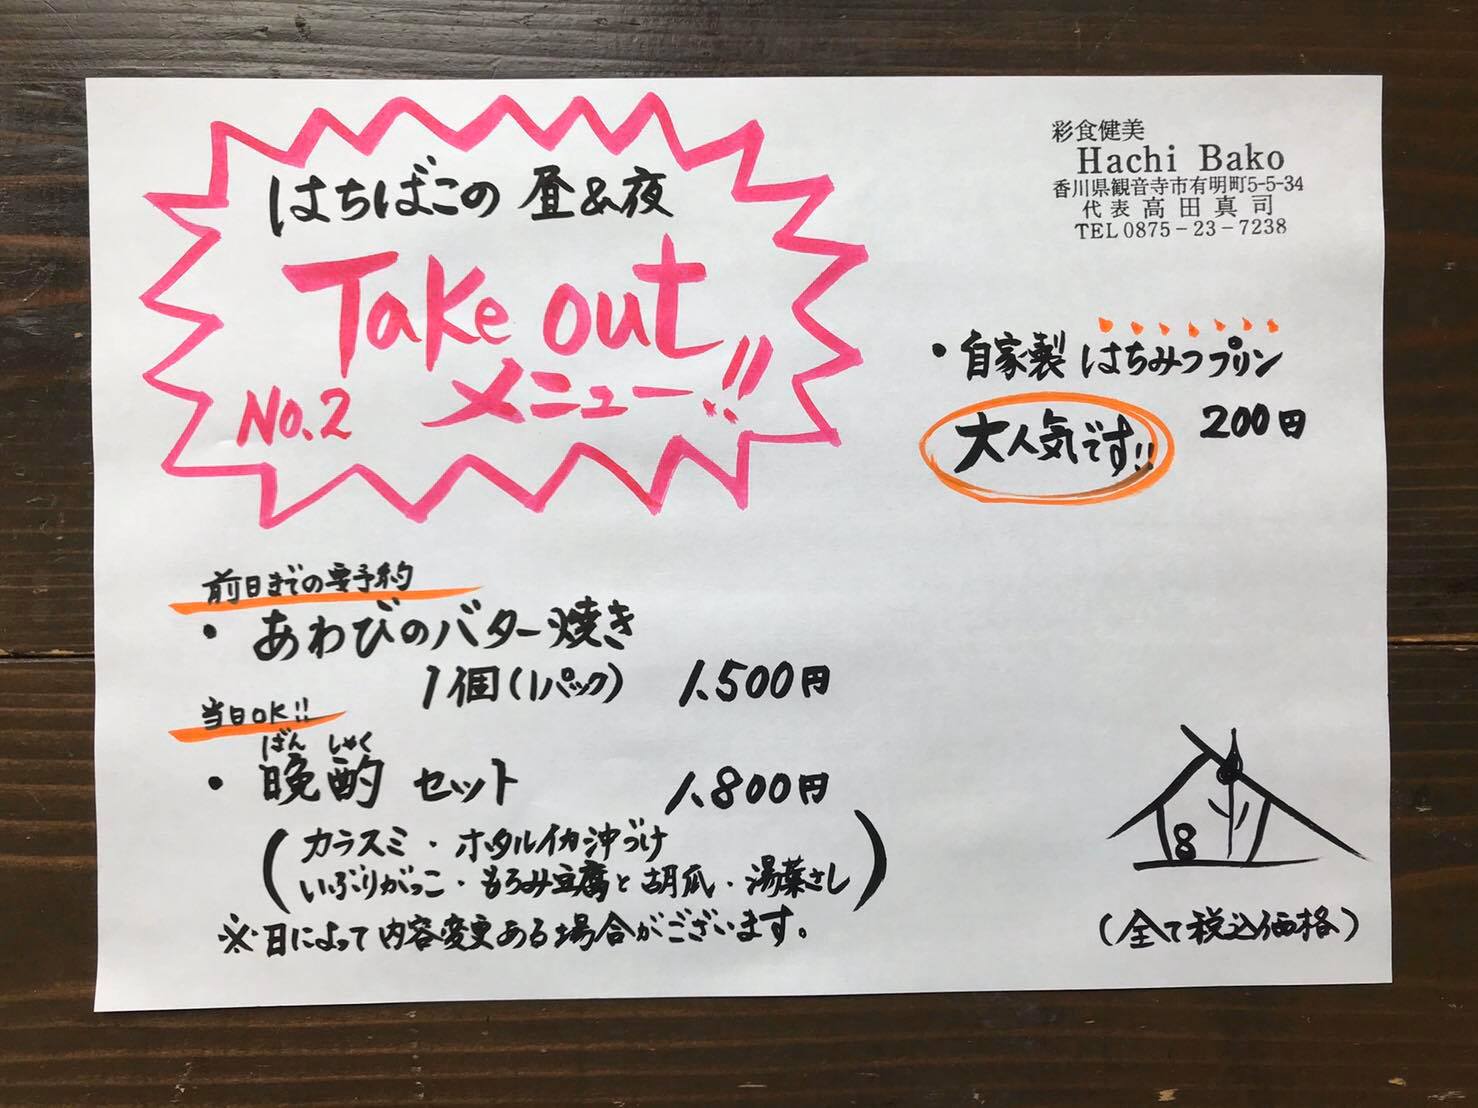 はちばこの 昼&夜
Take out
メニュー!!
No.2
彩食健美
Hachi Bako
香川県観音寺市有明町5-5-34
代表 高田真司
TEL 0875-23-7238
・自家製 はちみつプリン
200円
大人気です!!
前日までの要予約
・あわびのバター焼き
1個(1パック) 1,500円
当日OK!!
ばん しゃく
・晩酌 セット 1,800円
(カラスミ・ホタルイカ沖づけ
いぶりがっこ・もろみ豆腐と胡瓜・湯葉さし)
※日によって内容変更ある場合がございます。
8
(全て税込価格)